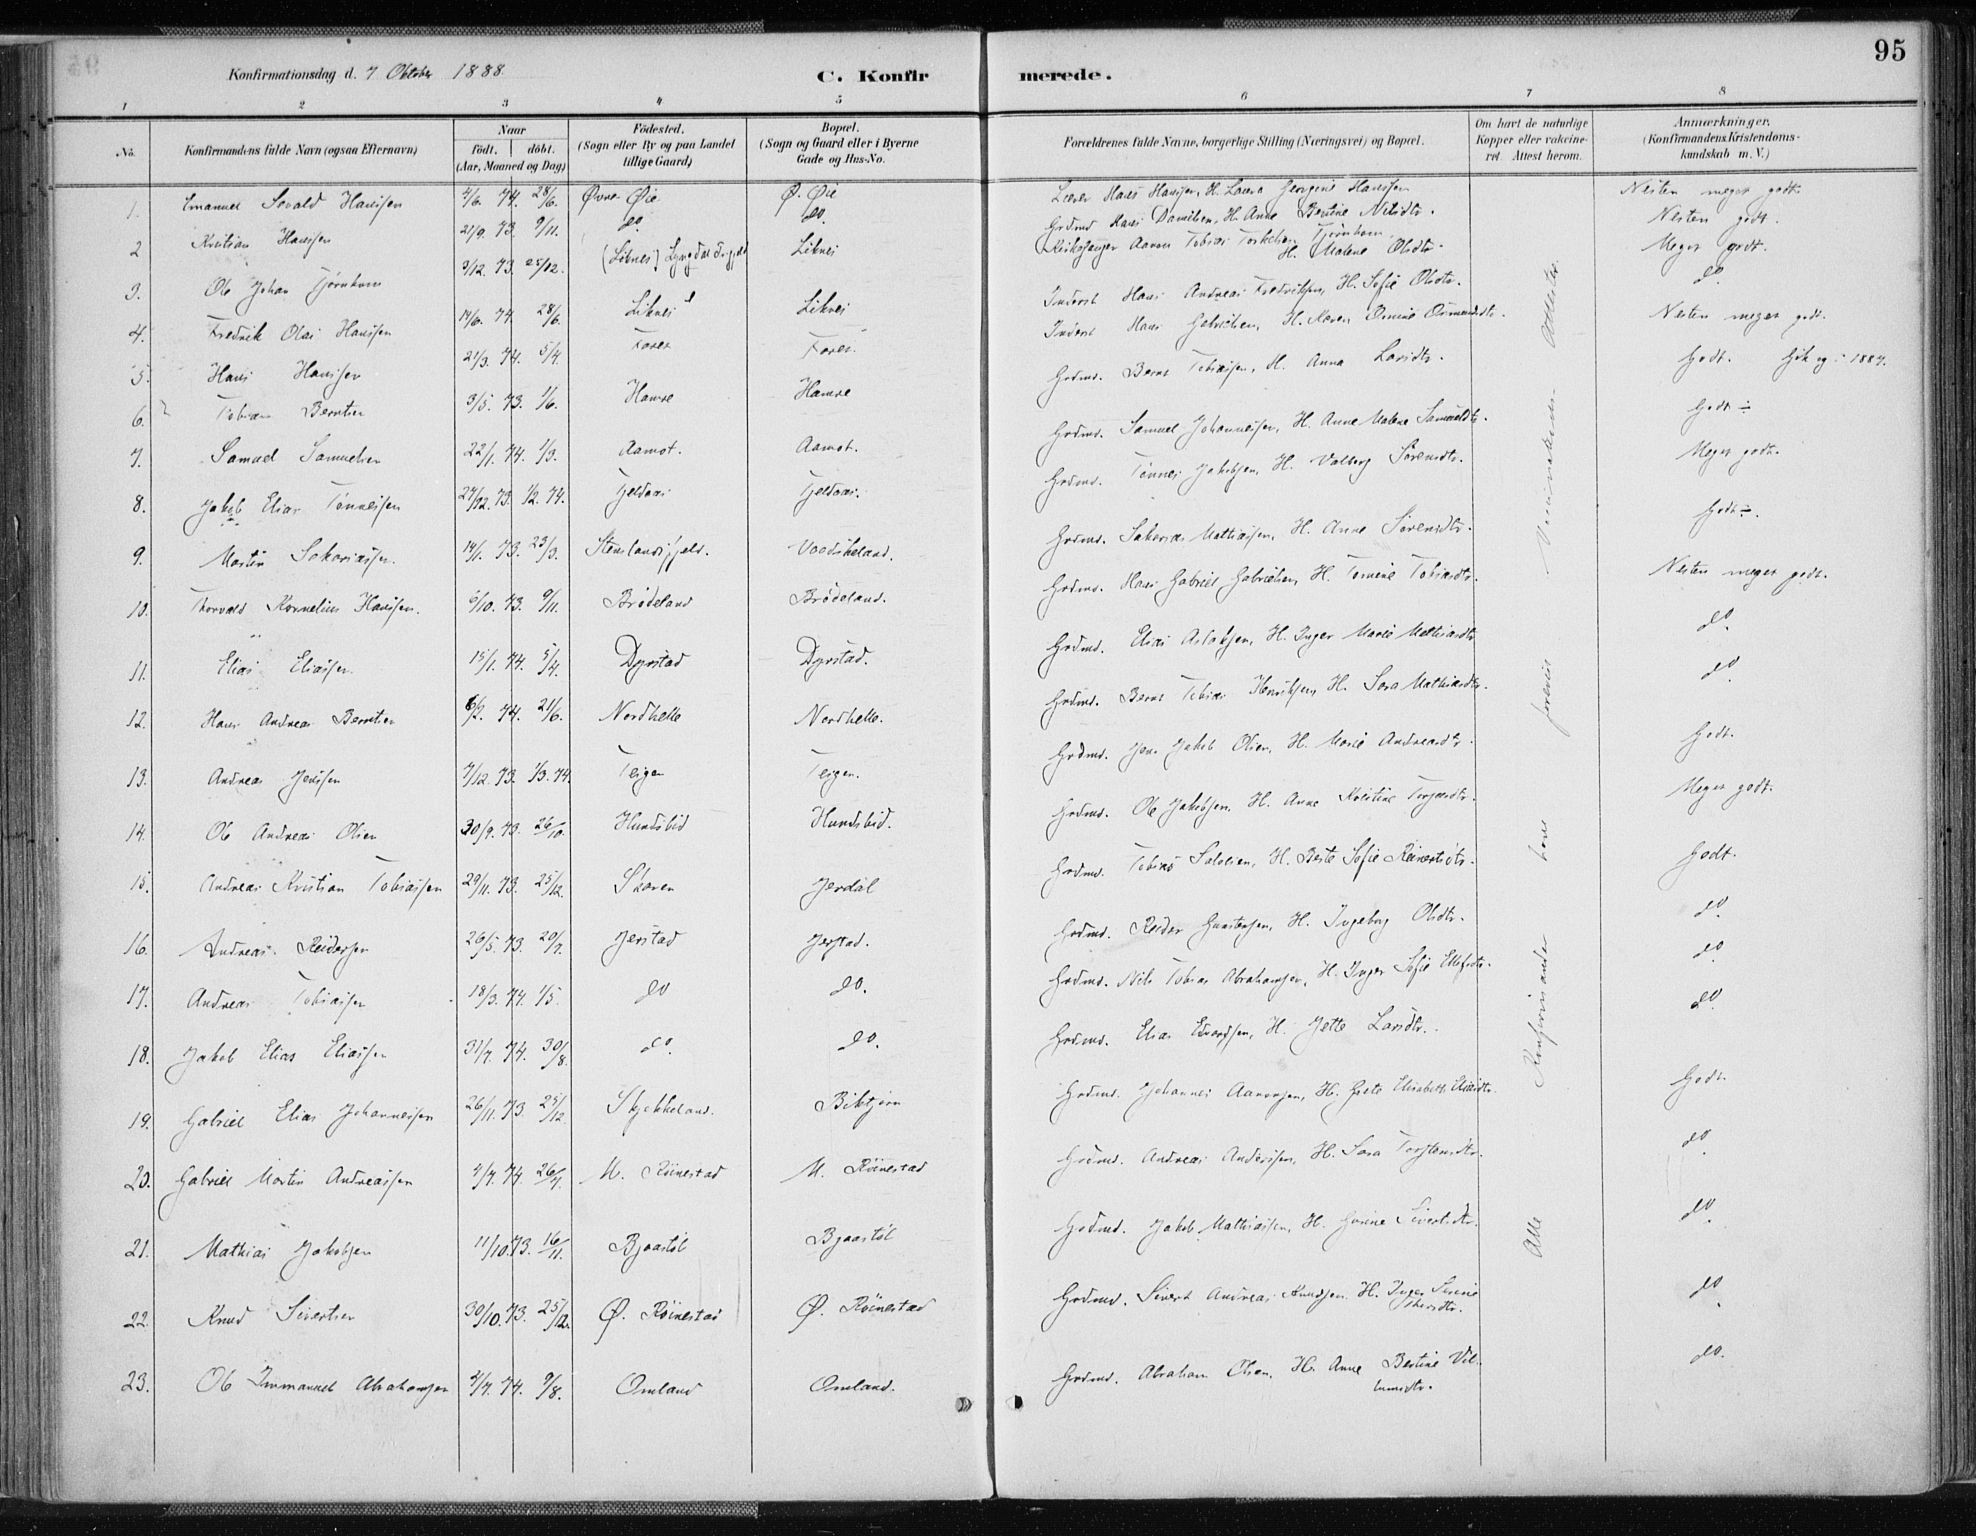 95
Konfirmationsdag d. 7 Oktober 1888.
C. Konfirmerede.
1 2 3 4 5 6 7 8
No. Konfirmandens fulde Navn (ogsaa Efternavn) Naar födt. döbt. (Aar, Maaned og Dag) Födested. (Sogn eller By og paa Landet tillige Gaard) Bopæl. (Sogn og Gaard eller i Byerne Gade og Hus-No. Forældrenes fulde Navne, borgerlige Stilling (Næringsvei) og Bopæl. Om havt de naturlige Kopper eller vakcineret Attest herom. Anmærkninger. (Konfirmandens Kristendomskundskab m. V.)
1. Emanuel Sevald Hansen 4/6. 74. 28/6. Øvre Øie Ø. Øie Lærer Hans Hansen, H. Laura Georgine Hansen Nesten meget godt.
2 Kristian Hansen 21/9. 73. 9/11. do. do. Grdmd Hans Danielsen, H. Anne Bertine Nilsdtr. Nesten godt.
3. Ole Johan Tjørnhom 3/12. 73. 25/12. (Liknes) Lyngdal Liknes Kirkesanger Aaron Tobias Torkelsen Tjørnhom H. Malene Olsdtr. Meget godt.
4. Fredrik Olai Hansen 14/6. 74. 28/6. Liknes Liknes Inderst Hans Andreas Fredriksen, H. Sofie Olsdtr. do
5. Hans Hansen 21/3. 74. 5/4. Foren Inderst Hans Gabrielsen, H. Karen Nesten meget godt.
6. Tobias Berntsen 3/5. 73. 1/6. Hamre Hamre Grdmd. Bernt Tobiassen, H. Anna Larsdtr. Godt. Gik og i 1887.
7. Samuel Samuelsen 22/1. 74. 1/3. Aamot. Aamot. Grdmd. Samuel Johannessen, H. Anne Malene Samuelsdtr. Godt ÷
8. Jakob Elias Tønnesen 27/12. 73. 1/2. 74. Fjeldsaa Fjeldsaa. Grdmd. Tønnes Jakobsen, H. Valborg Sørensdtr. Meget godt.
9. Martin Sakariassen. 14/1. 73. 23/3. Grdmd. Sakarias Mathiassen, H. Anne Sørensdtr. Godt ÷.
10. Torvald Kornelius Hansen. 6/10. 73. 9/11. Brødeland Brødeland. Grdmd. Hans Gabriel Gabrielsen, H. Tomine Tobiasdtr. Nesten meget godt.
11. Elias Eliassen. 15/1. 74. 5/4. Dyrstad Dyrstad. Grdmd. Elias Aslaksen, H. Inger Marie Mathiasdtr do.
12. Hans Andreas Berntsen 6/2. 74. 21/6. Nordhelle Nordhelle. Grdmd. Bernt Tobias Henriksen, H. Sara Mathiasdtr. do.
13. Andreas Jensen 7/12. 73. 1/3. 74. Teigen Teigen. Grdmd. Jens Jakob Olsen, H. Marie Andreasdtr. Godt.
14. Ole Andreas Olsen 30/9. 73. 26/10. Hundsbid Hundsbid. Grdmd. Ole Jakobsen, H. Anne Kristine Terjesdtr. Meget godt.
15. Andreas Kristian Tobiassen 29/11. 73. 25/12. Skoven Jerdal Grdmd. Tobias Salvesen, H. Berte Sofie Reinertsdtr. Godt.
16. Andreas Reidersen 26/5. 73. 20/7. Jerstad Jerstad. Grdmd. Reider Gunstensen, H. Ingeborg Olsdtr. do.
17. Andreas Tobiassen 18/3. 74. 1/5. do do. Grdmd. Nils Tobias Abrahamsen, H. Inger Sofie Ellefsdtr. do.
18. Jakob Elias Eliassen 31/7. 74. 30/8. do. do. Grdmd. Elias Edvardsen, H. Jette Larsdtr. do.
19. Gabriel Elias Johannessen 26/11. 73. 25/12. Skjekkeland. Biktjørn Grdmd. Johannes Aaronsen, H. Grete Elisabeth Eliasdtr. Godt.
20. Gabriel Martin Andreassen 4/7. 74. 26/7. M. Røinestad M. Røinestad Grdmd. Andreas Andersen, H. Sara Torstensdtr. do.
21. Mathias Jakobsen 11/10. 73. 16/11. Bjaastøl Bjaastøl Grdmd. Jakob Mathiassen, H. Gurine Sivertsdtr. do.
22. Knud Sivertsen 30/10. 73. 25/12. Ø. Røinestad Ø. Røinestad Grdmd. Sivert Andreas Knudsen H. Inger Serine do.
23. Ole Immanuel Abrahamsen 2/7. 74. 9/8. Omland Omland. Grdmd. Abraham Olsen, H. Anne Bertine Vilumsdtr. do.
Alle Konfirmander have forevist Attester.